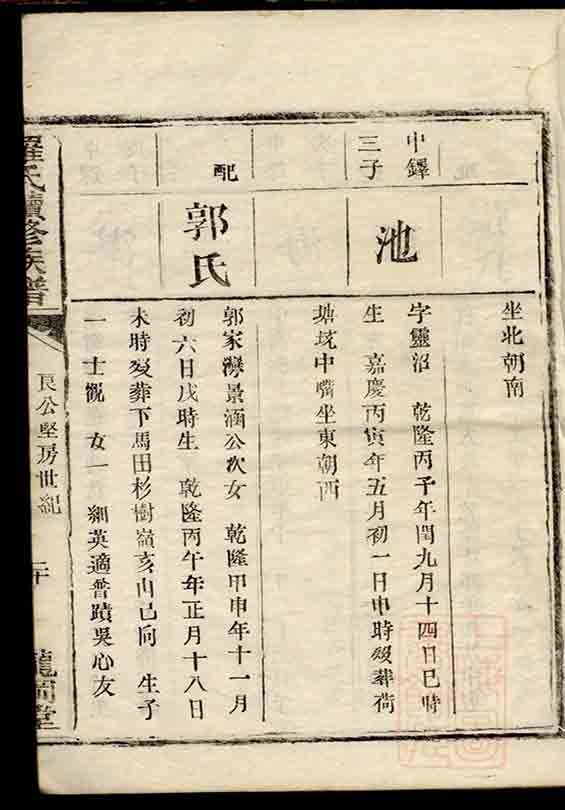 坐北朝南
中鐸
三子
池
字靈沼 乾隆丙子年閏九月十四日巳時
生 嘉慶丙寅年五月初一日申時歿葬荷
塘坑中嘴坐東朝西
配
郭氏
郭家灣景涵公次女 乾隆甲申年十一月
初六日戌時生 乾隆丙午年正月十八日
未時歿葬下馬田杉樹嶺亥山巳向 生子
一士觀 女一細英適普蹟吳心友
羅氏續修族譜
良公堅房世紀